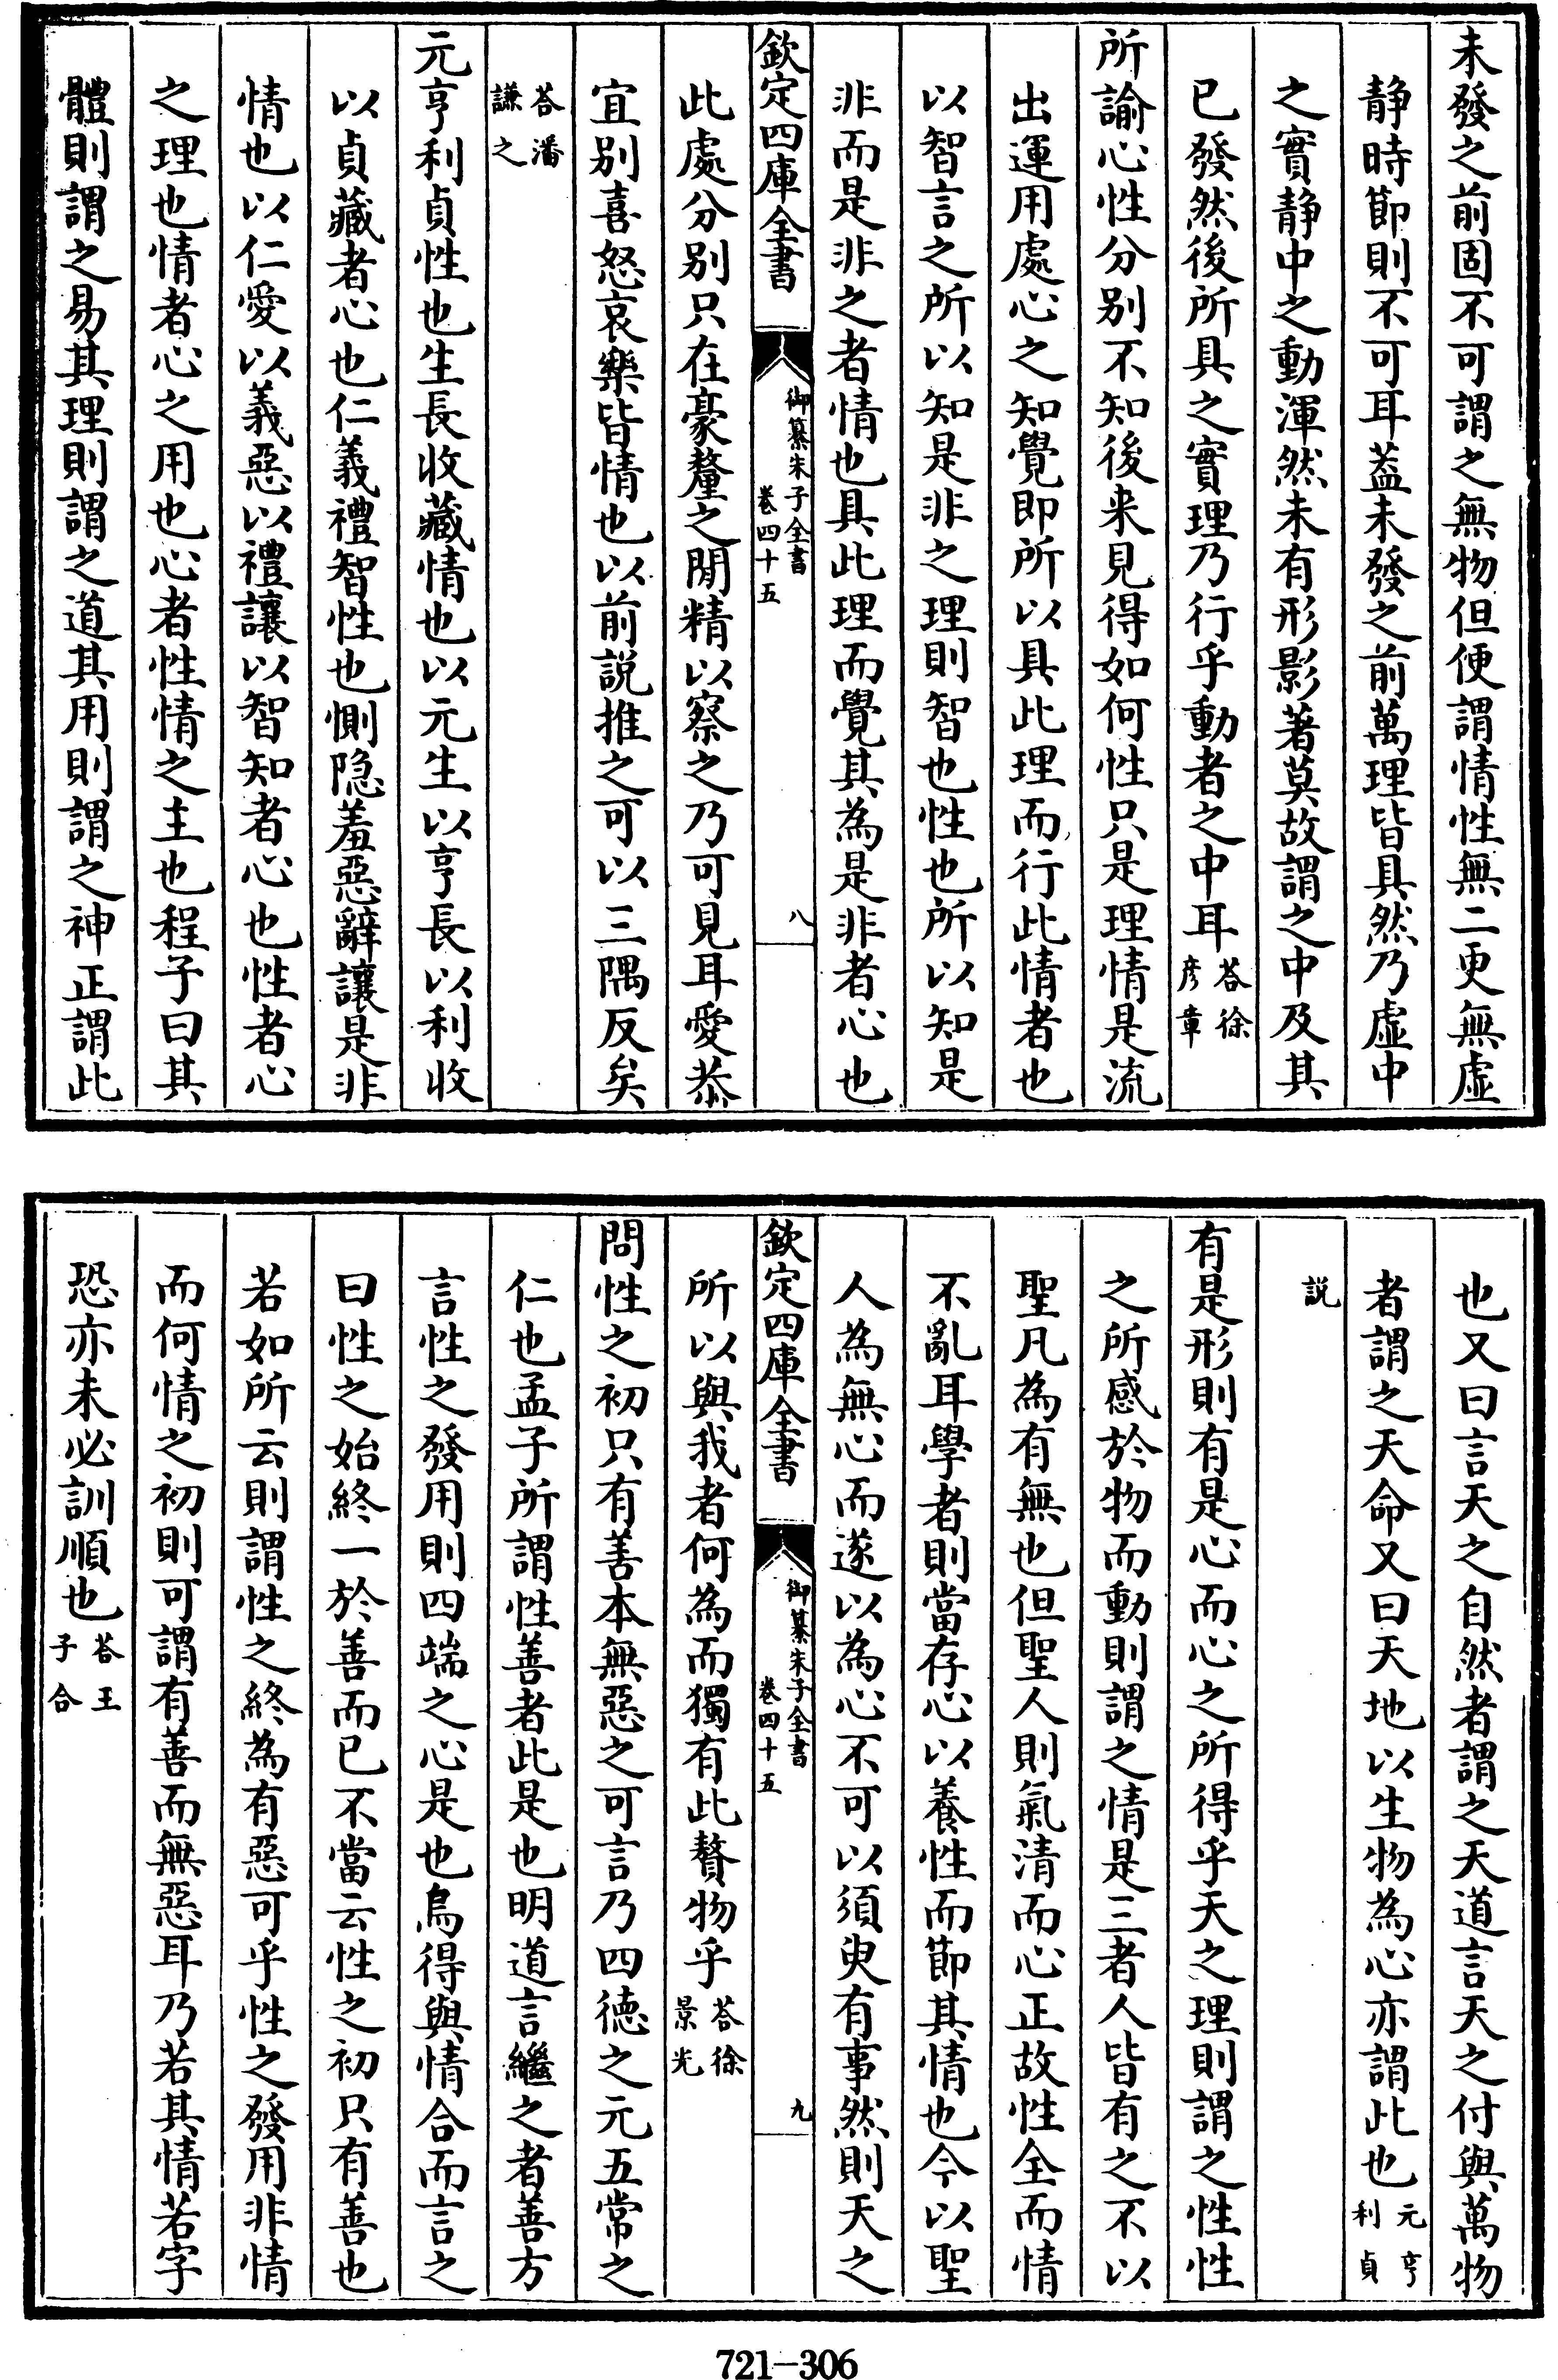 未發之前固不可謂之無物但便謂情性無二更無虛
静時節則不可耳葢未發之前萬理皆具然乃虛中
之實静中之動渾然未有形影著莫故謂之中及其
已發然後所具之實理乃行乎動者之中耳答徐彥章
所諭心性分别不知後来見得如何性只是理情是流
出運用處心之知覺即所以具此理而行此情者也
以智言之所以知是非之理則智也性也所以知是
非而是非之者情也具此理而覺其為是非者心也
欽定四庫全書
御纂朱子全書
卷四十五
八
此處分别只在豪釐之閒精以察之乃可見耳愛恭
宜别喜怒哀樂皆情也以前説推之可以三隅反矣
答潘謙之
元亨利貞性也生長收藏情也以元生以亨長以利收
以貞藏者心也仁義禮智性也惻隐羞惡辭讓是非
情也以仁愛以義惡以禮讓以智知者心也性者心
之理也情者心之用也心者性情之主也程子曰其
體則謂之易其理則謂之道其用則謂之神正謂此
也又曰言天之自然者謂之天道言天之付與萬物
者謂之天命又曰天地以生物為心亦謂此也元亨利貞
説
有是形則有是心而心之所得乎天之理則謂之性性
之所感於物而動則謂之情是三者人皆有之不以
聖凡為有無也但聖人則氣清而心正故性全而情
不亂耳學者則當存心以養性而節其情也今以聖
人為無心而遂以為心不可以須臾有事然則天之
欽定四庫全書
御纂朱子全書
卷四十五
九
所以與我者何為而獨有此贅物乎答徐景光
問性之初只有善本無惡之可言乃四徳之元五常之
仁也孟子所謂性善者此是也明道言繼之者善方
言性之發用則四端之心是也烏得與情合而言之
曰性之始終一於善而已不當云性之初只有善也
若如所云則謂性之終為有惡可乎性之發用非情
而何情之初則可謂有善而無惡耳乃若其情若字
恐亦未必訓順也答王子合
721-306